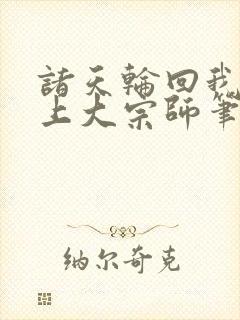 諸天輪回我
上大宗師筆
纳尔奇克